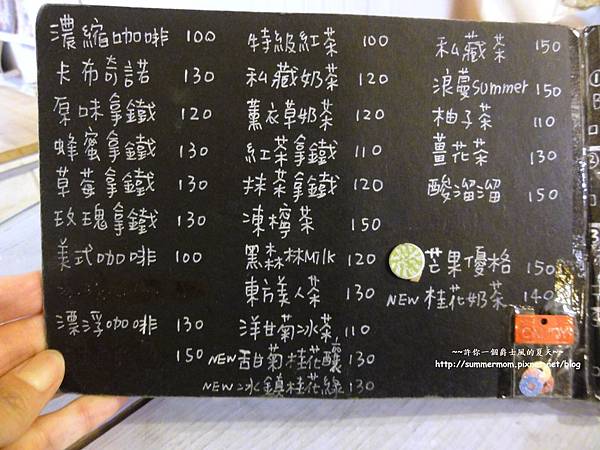 濃縮咖啡 100
卡布奇諾 130
原味拿鐵 120
蜂蜜拿鐵 130
草莓拿鐵 130
玫瑰拿鐵 130
美式咖啡 100
漂浮咖啡 130
150
特級紅茶 100
私藏奶茶 120
薰衣草奶茶 120
紅茶拿鐵 110
抹茶拿鐵 120
凍檸茶 150
黑森林Milk 120
東方美人茶 130
洋甘菊冰茶 110
NEW 甜菊桂花釀 130
NEW 冰鎮桂花綠 130
私藏茶 150
浪蔓summer 150
柚子茶 110
薑花茶 130
酸溜溜 150
芒果優格 150
NEW 桂花奶茶 140
~~許你一個爵士風的夏天~~
http://summermom.pixnet.net/blog